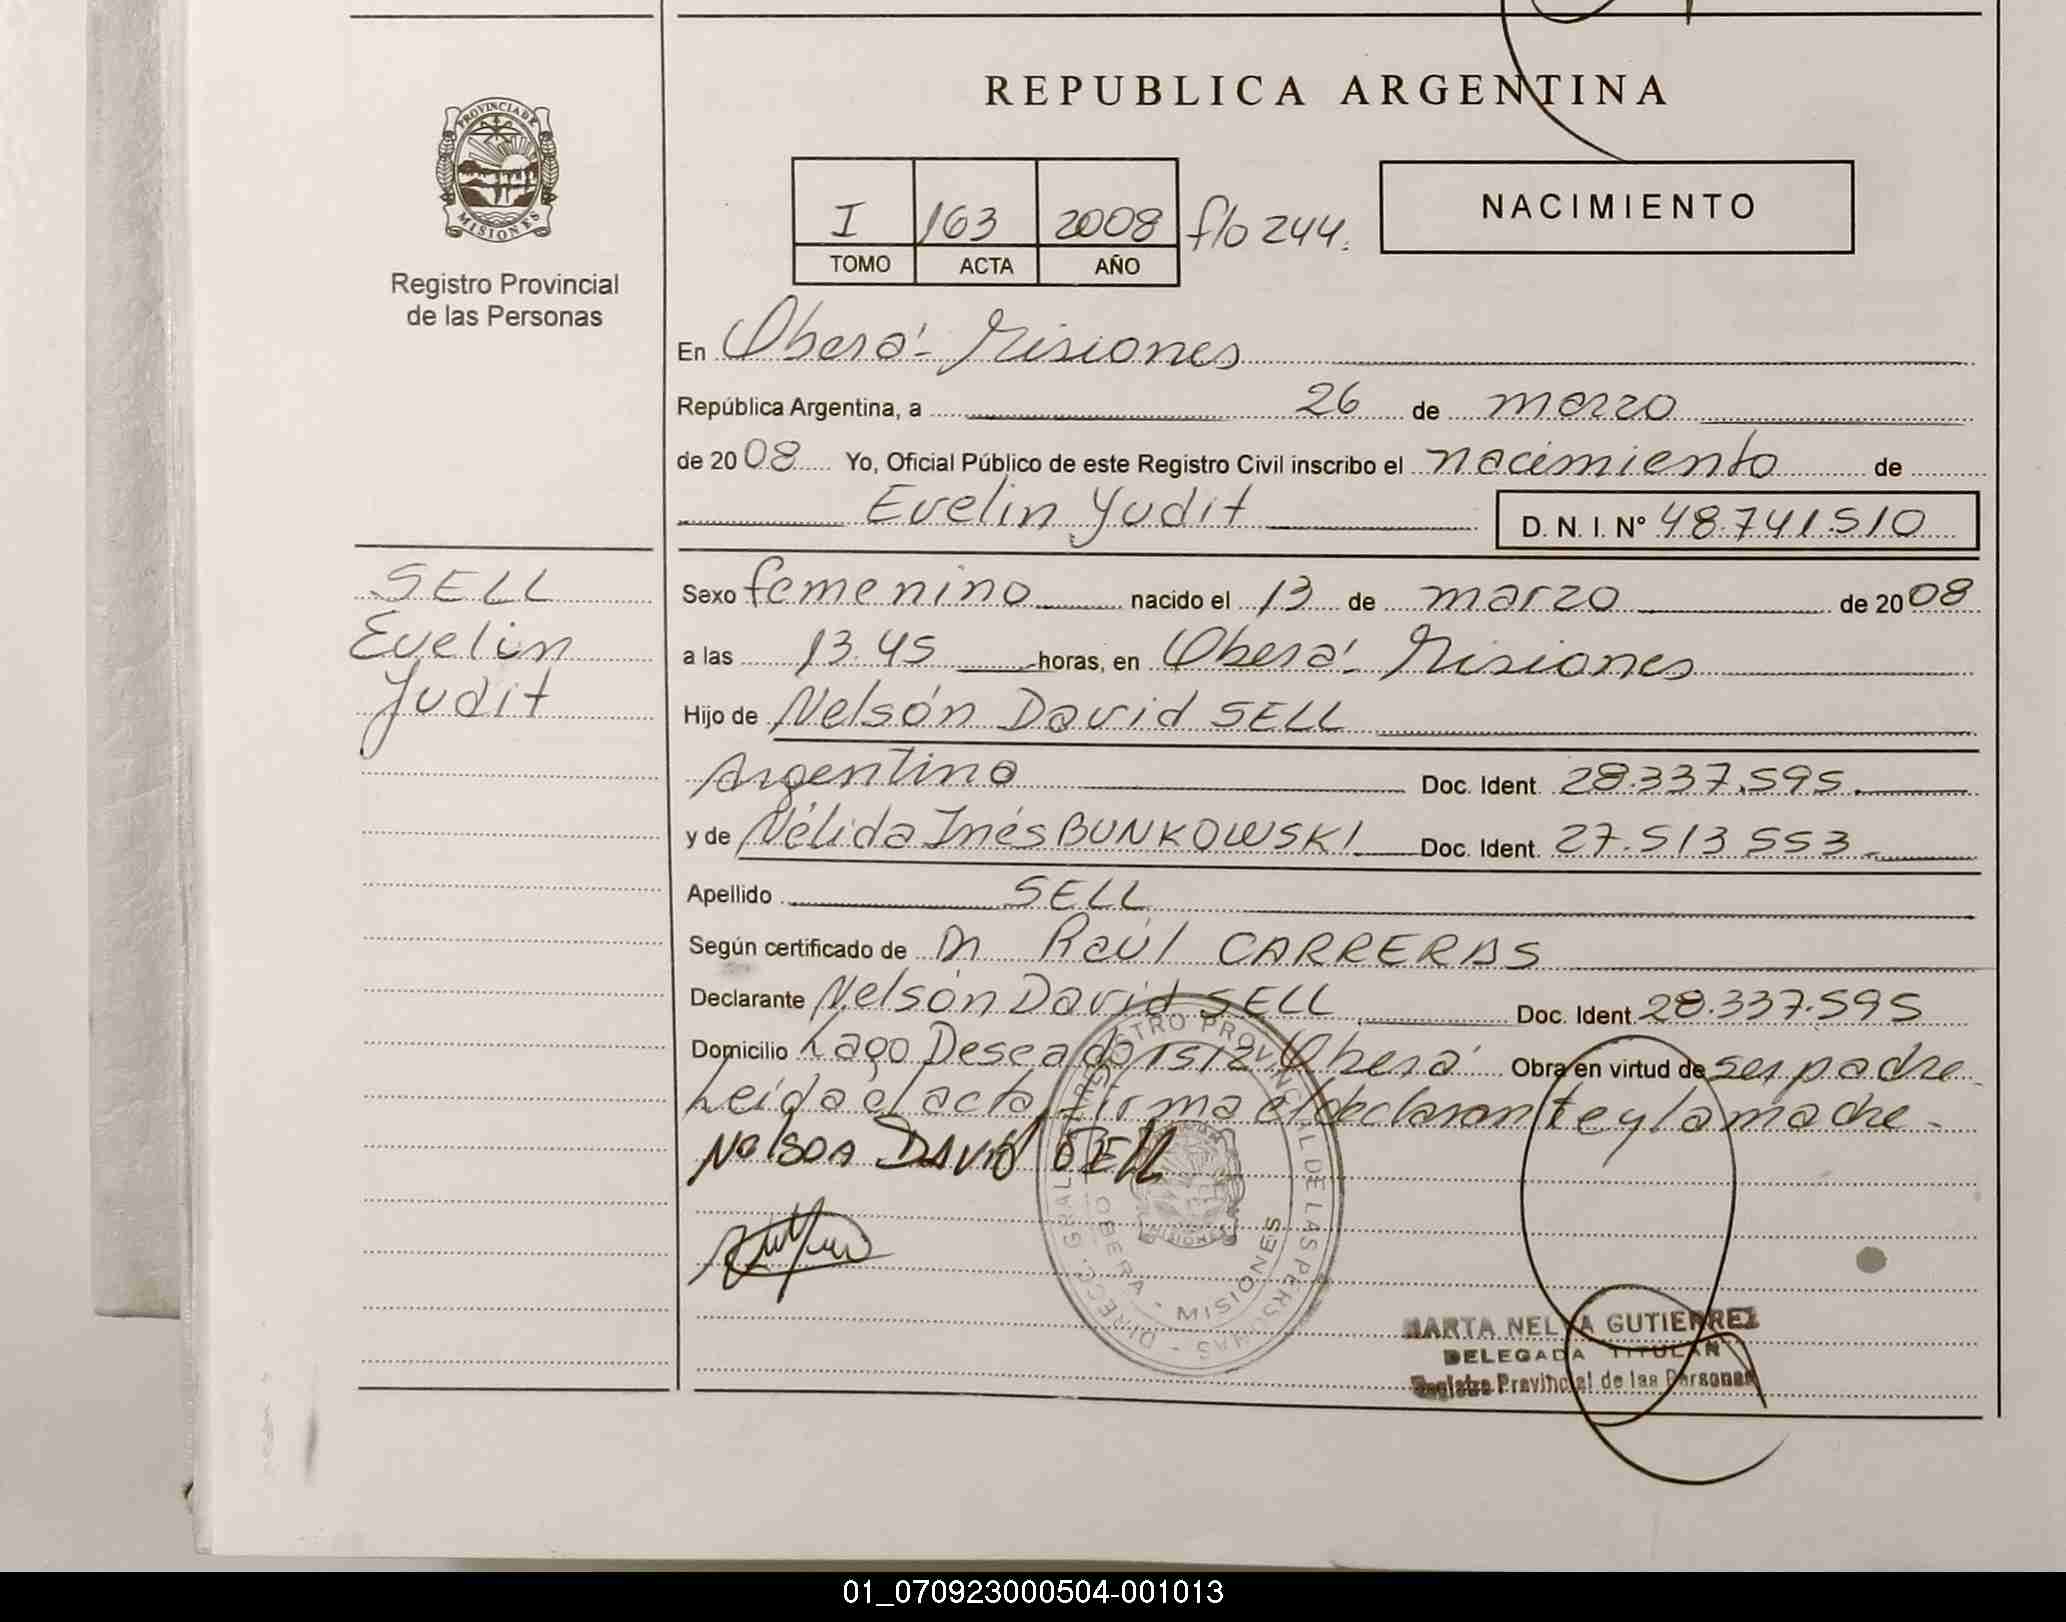 REPUBLICA ARGENTINA
PROVINCIA DE
MISIONES
Registro Provincial
de las Personas
I 163 2008 flo 244.
TOMO ACTA AÑO
NACIMIENTO
En Oberá - Misiones
República Argentina, a 26 de marzo
de 2008 Yo, Oficial Público de este Registro Civil inscribo el nacimiento de
Evelin Yudit D. N. I. N° 48.741.510
SELL
Evelin
Yudit
Sexo femenino nacido el 13 de marzo de 2008
a las 13.45 horas, en Oberá - Misiones
Hijo de Nelsón David SELL
Argentino Doc. Ident. 28.337.595.
y de Nélida Inés BUNKOWSKI Doc. Ident. 27.513.553.
Apellido SELL
Según certificado de Dr Raúl CARRERAS
Declarante Nelsón David SELL Doc. Ident. 28.337.595
Domicilio Lago Deseado 1512 Oberá Obra en virtud de ser padre.
Leída el acta, firma el declarante y la madre.
Nelson David SELL
DIRECC. GRAL. REGISTRO PROVINCIAL DE LAS PERSONAS
OBERA - MISIONES
MISIONES
MARTA NELVA GUTIERREZ
DELEGADA TITULAR
Registro Provincial de las Personas
01_070923000504-001013